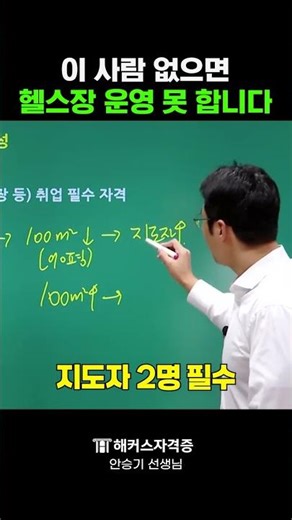 이 사람 없으면
헬스장 운영 못 합니다
성
장 등) 취업 필수 자격
→ 100m² ↓ → 지도자
100m² ↑ →
지도자 2명 필수
해커스자격증
안승기 선생님